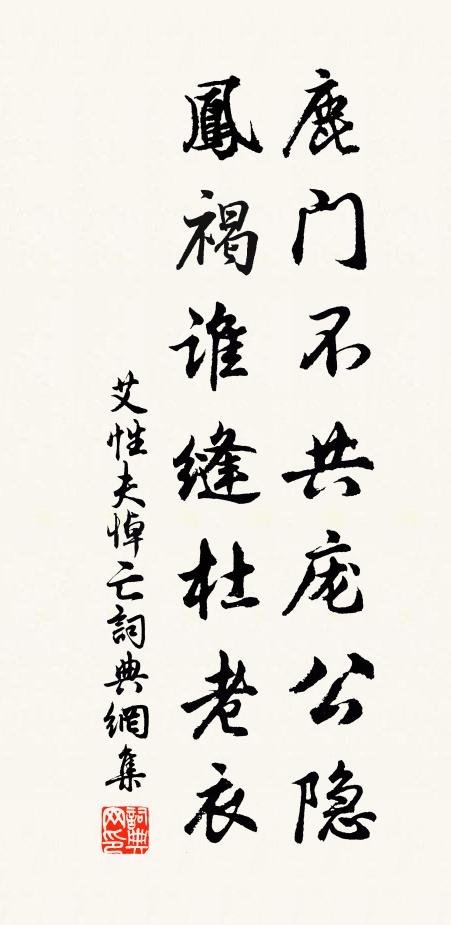 鹿门不共庞公隐
鳳褐谁縫杜老衣
艾性夫悼亡詞典網集
詞典网印